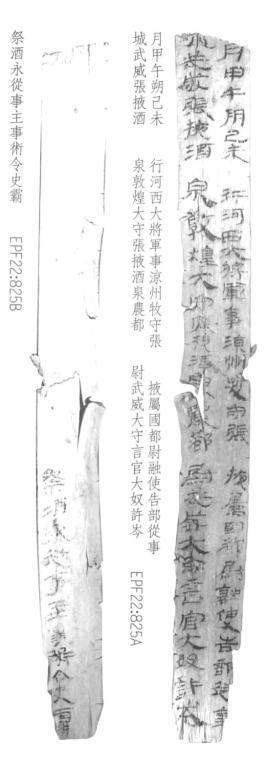 月甲午朔己未　行河西大將軍事涼州牧守張　掖屬國都尉融使告部從事
城武威張掖酒　泉敦煌大守張掖酒泉農都　尉武威大守言官大奴許岑　EPF22:825A
祭酒永從事主事術令史霸　EPF22:825B